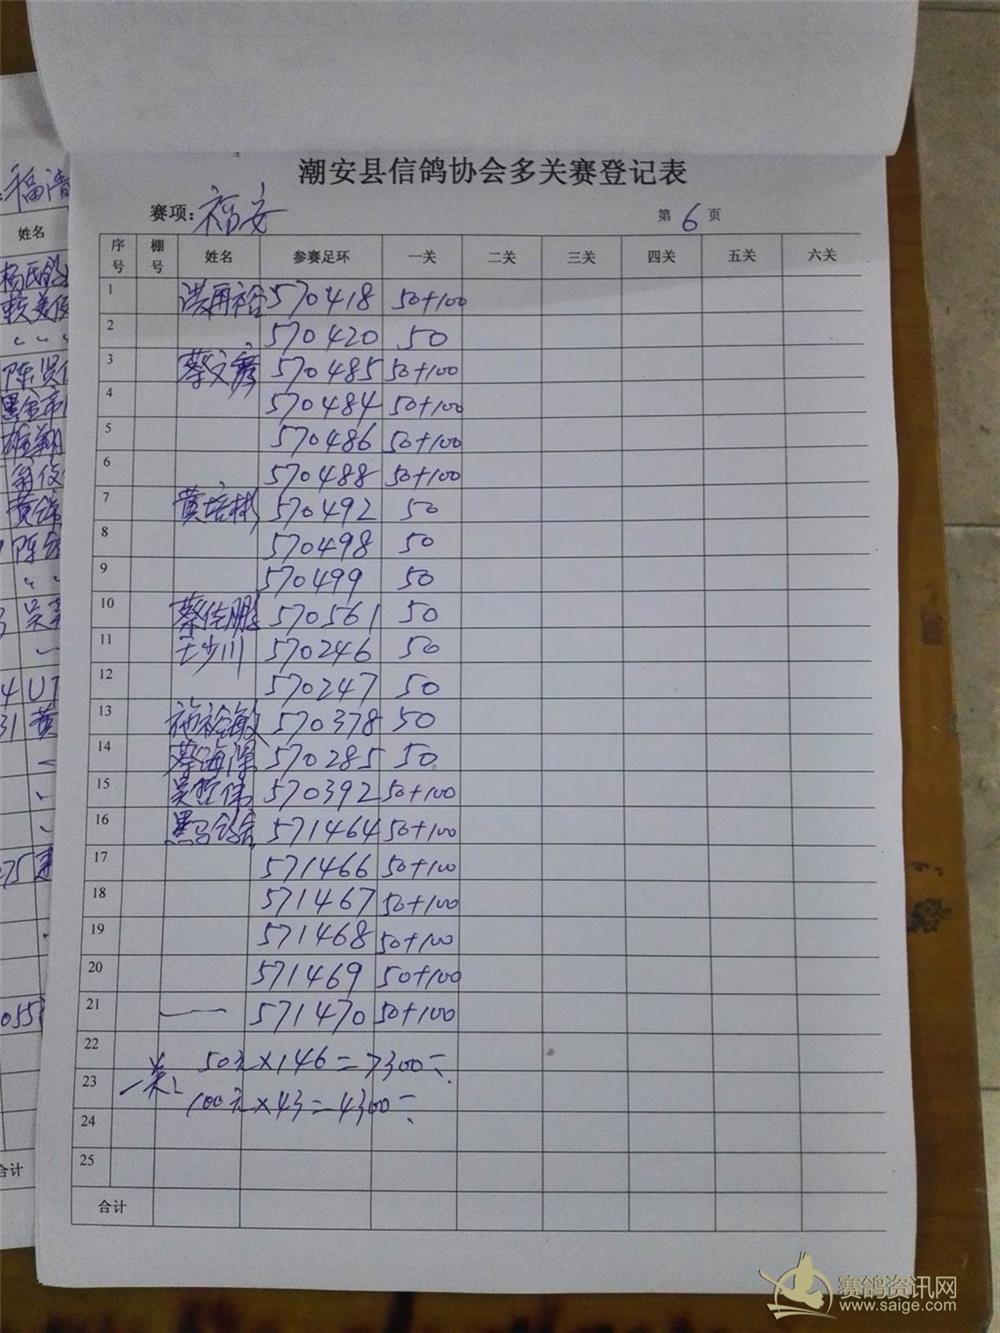 潮安县信鸽协会多关赛登记表
赛项：福安 第6页
序号 棚号 姓名 参赛足环 一关 二关 三关 四关 五关 六关
1 洪再裕 570418 50+100
2 570420 50
3 蔡文彦 570485 50+100
4 570484 50+100
5 570486 50+100
6 570488 50+100
7 黄培彬 570492 50
8 570498 50
9 570499 50
10 蔡佳鹏 570561 50
11 王少川 570246 50
12 570247 50
13 施裕敏 570378 50
14 蔡海深 570285 50
15 吴哲伟 570392 50+100
16 黑马鸽舍 571464 50+100
17 571466 50+100
18 571467 50+100
19 571468 50+100
20 571469 50+100
21 571470 50+100
22 50元×146=7300
23 一关 100元×43=4300
24
25
合计
福清
姓名
赖美俊
陈贤
黄
陈
吴
4 UT
31 黄
75
055
合计
赛鸽资讯网
www.saige.com